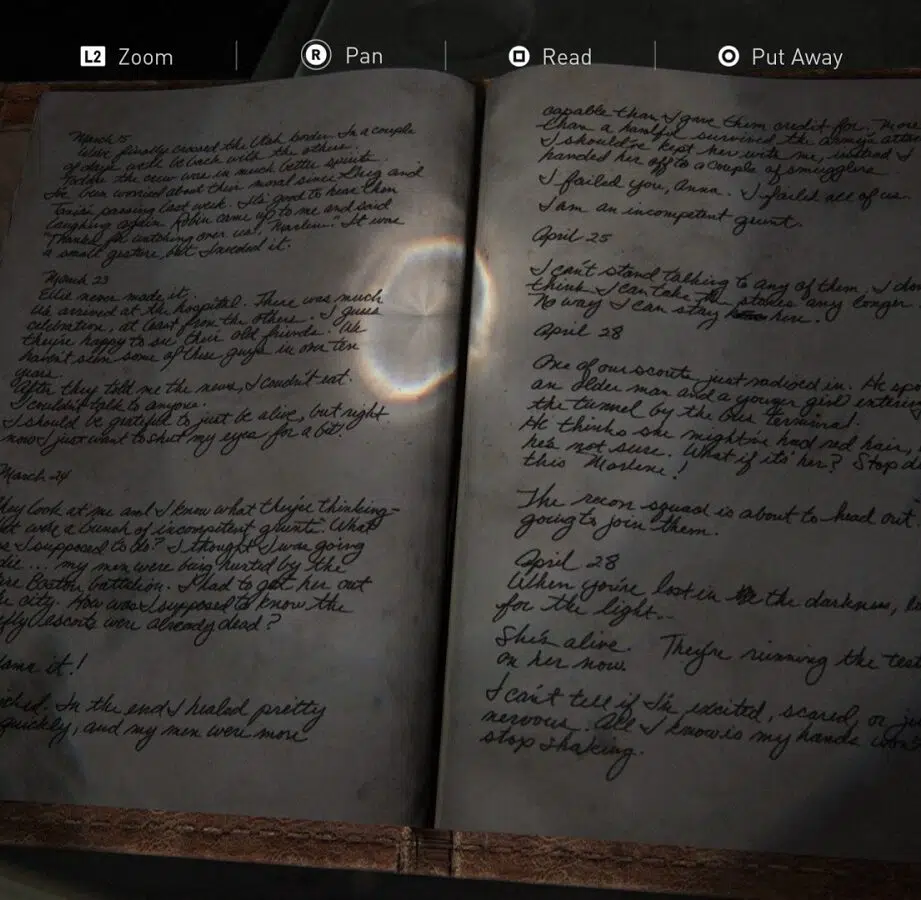 L2 Zoom
R Pan
Read
Put Away
March 15
We've finally crossed the Utah border. In a couple
of days we'll be back with the others.
Today the crew was in much better spirits.
I've been worried about their moral since and
passing last week. It's good to hear them
laughing again. Robin came up to me and said
"Thanks for watching over us, Marlene." It was
a small gesture, but I needed it.
March 23
Ellie never made it.
We arrived at the hospital. There was much
celebration, at least from the others. I guess
they're happy to see their old friends. We
haven't seen some of these guys in over ten
years.
After they told me the news, I couldn't eat.
I couldn't talk to anyone.
I should be grateful to just be alive, but right
now I just want to shut my eyes for a bit.
March 24
hey look at me and I know what they're thinking-
a bunch of incompetent grunts. What
I supposed to do? I thought I was going
die... my men were being hunted by the
re Boston battalion. I had to get her out
city. How was I supposed to know the
efly escorts were already dead?
damn it!
In the end I healed pretty
quickly, and my men were more
capable than I gave them credit for. More
than a handful survived the army's atta
I should've kept her with me, instead I
handed her off to a couple of smugglers.
I failed you, Anna. I failed all of us.
I am an incompetent grunt.
April 25
I can't stand talking to any of them. I don
think I can take the stares any longer
No way I can stay here.
April 28
One of our scouts just radioed in. He spo
an older man and a younger girl enterin
the tunnel by the bus terminal.
He thinks she might've had red hair,
he's not sure. What if it's her? Stop d
this Marlene!
The recon squad is about to head out
going to join them.
April 28
When you're lost in the darkness, l
for the light...
She's alive. They're running the test
on her now.
I can't tell if I'm excited, scared, or ju
nervous. All I know is my hands won't
stop shaking.